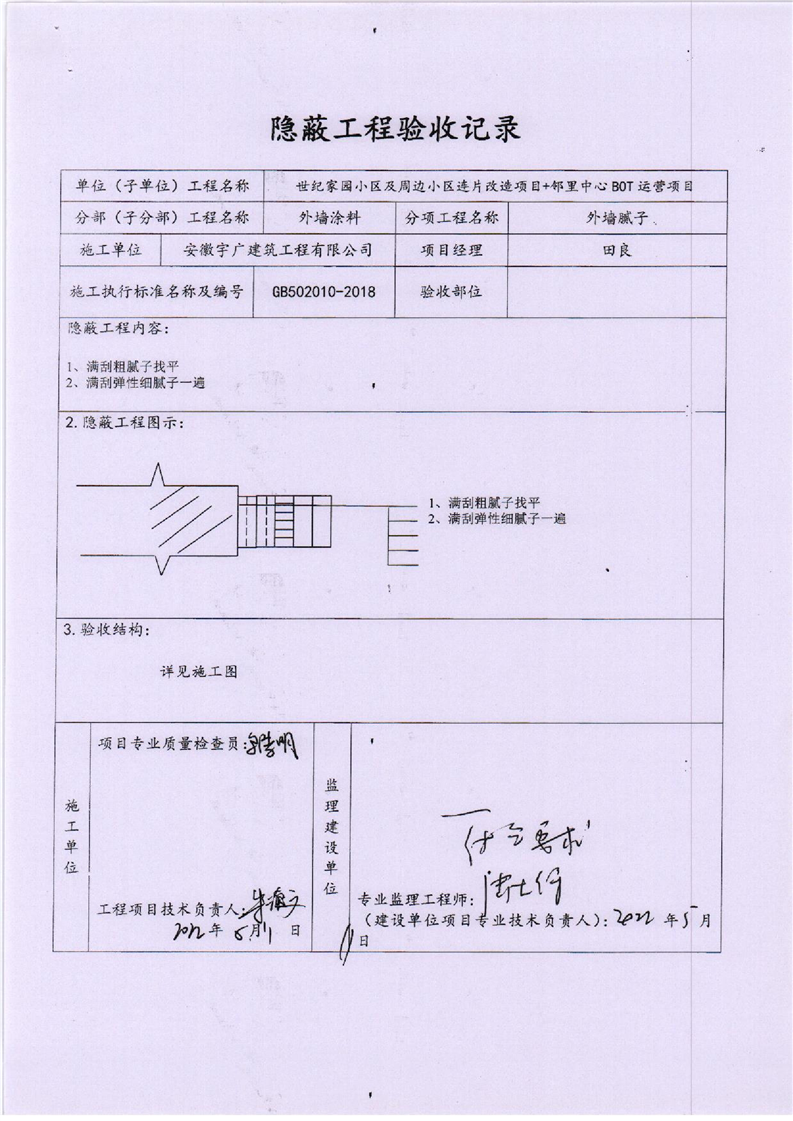 隐蔽工程验收记录
单位（子单位）工程名称 世纪家园小区及周边小区连片改造项目+邻里中心BOT运营项目
分部（子分部）工程名称 外墙涂料 分项工程名称 外墙腻子
施工单位 安徽宇广建筑工程有限公司 项目经理 田良
施工执行标准名称及编号 GB502010-2018 验收部位
隐蔽工程内容：
1、满刮粗腻子找平
2、满刮弹性细腻子一遍
2.隐蔽工程图示：
1、满刮粗腻子找平
2、满刮弹性细腻子一遍
3.验收结构：
详见施工图
施工单位
项目专业质量检查员：
工程项目技术负责人：
2022年 5月11日
监理建设单位
符合要求
专业监理工程师：
（建设单位项目专业技术负责人）：2022年5月
11日